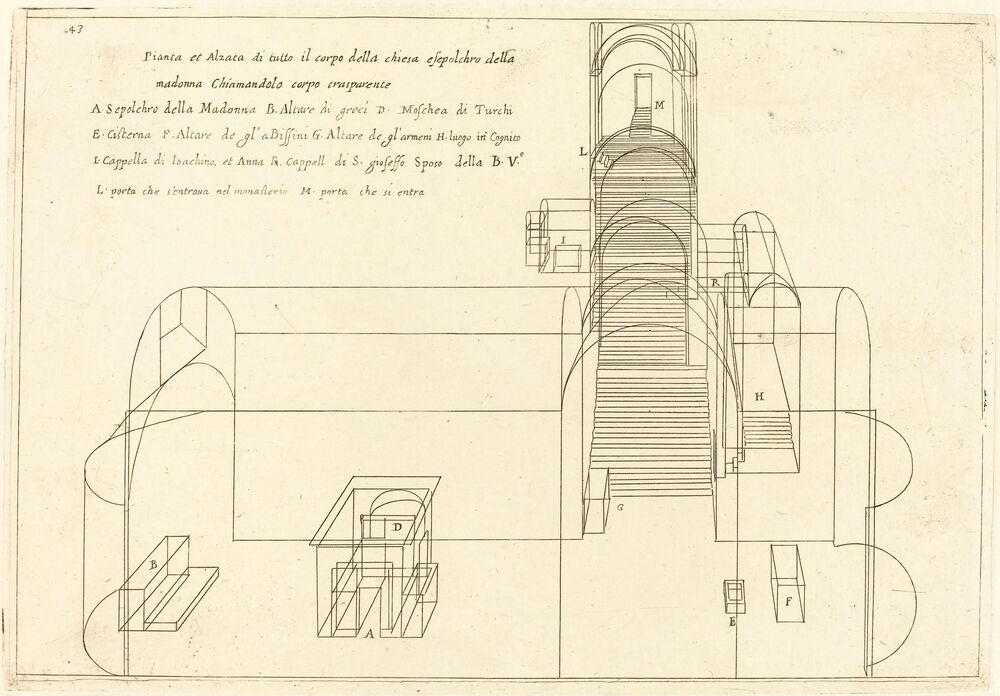 43
Pianta et Alzata di tutto il corpo della chiesa esepolchro della
madonna Chiamandolo corpo trasparente
A Sepolchro della Madonna B. Altare di greci D. Moschea di Turchi
E. Cisterna F. Altare de gl'aBissini G. Altare de gl'armeni H. luogo in Cognito
I. Cappella di Ioachino, et Anna R. Cappell di S. gioseffo Sposo della B. V.e
L. porta che s'entraua nel monasterio M. porta che si entra
M
L
I
R
H
G
D
B
A
E
F